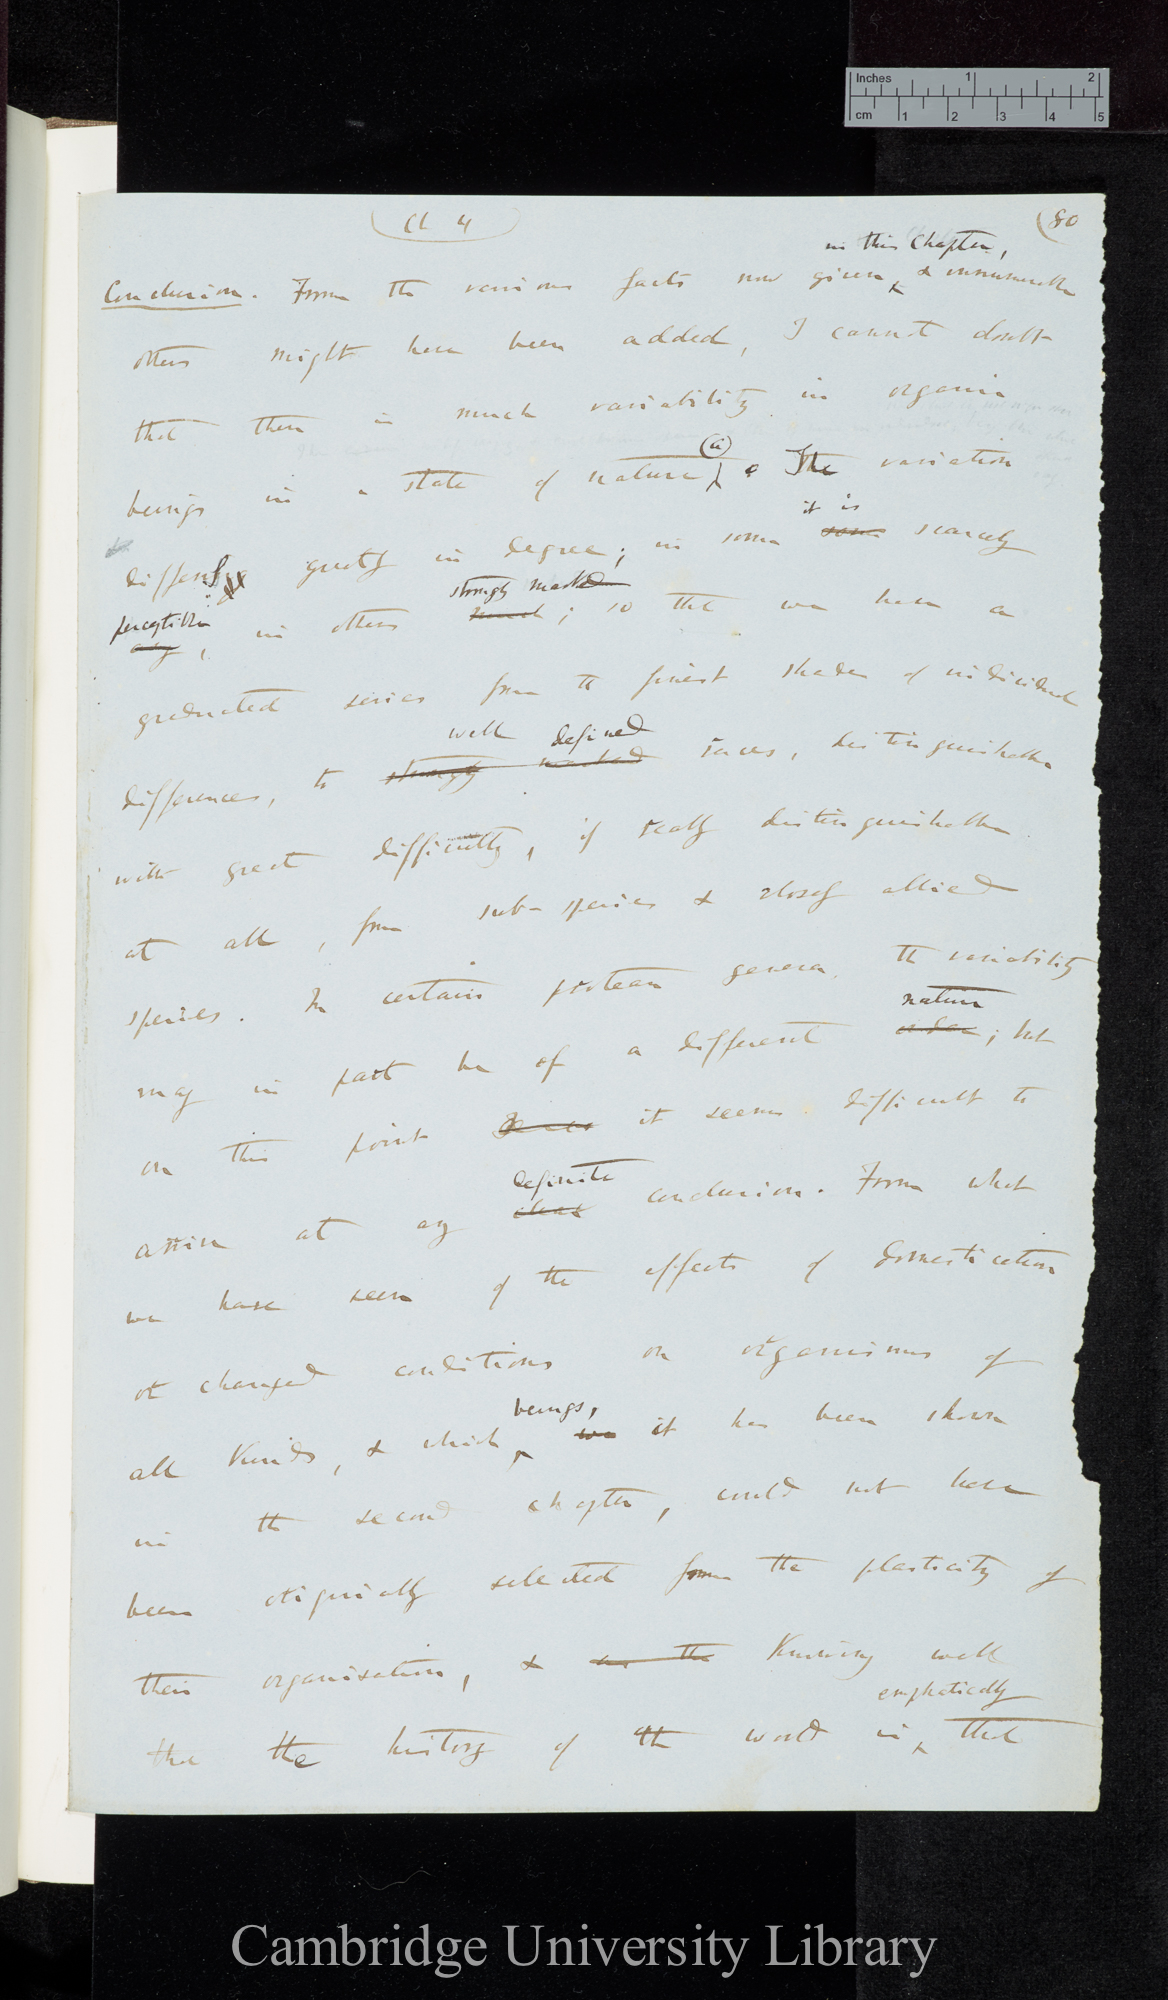 Inches 1 2
cm 1 2 3 4 5
Ch 4
(80
in this Chapter,
Conclusion. From the various facts now given, & innumerable
others might have been added, I cannot doubt
that there is much variability in organic
(a)
beings in a state of nature. The variation
it is
differs greatly in degree; in some some scarcely
strongly marked
perceptible
any, in others much; so that we have a
graduated series from the finest shades of individual
well defined
differences, to strongly marked races, distinguishable
with great difficulty, if really distinguishable
at all, from sub-species & closely allied
species. In certain protean genera, the variability
nature
may in part be of a different order; but
on this point it seems difficult to
definite
arrive at any clear conclusion. From what
we have seen of the effects of domestication
or changed conditions on organisms of
beings,
all kinds, & which we it has been shown
in the second chapter, could not have
been originally selected from the plasticity of
their organisation, & as the knowing well
emphatically
that the history of the world is, that
Cambridge University Library